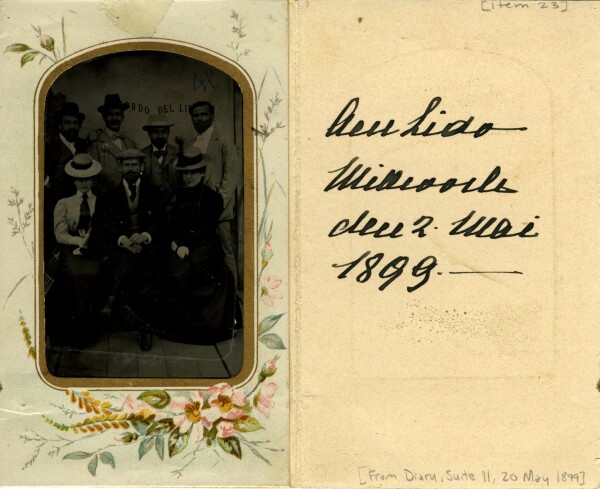 [item 23]
RDO DEL LI
Am Lido
Mittwoch
den 2. Mai
1899.—
[From Diary, Suite 11, 20 May 1899]